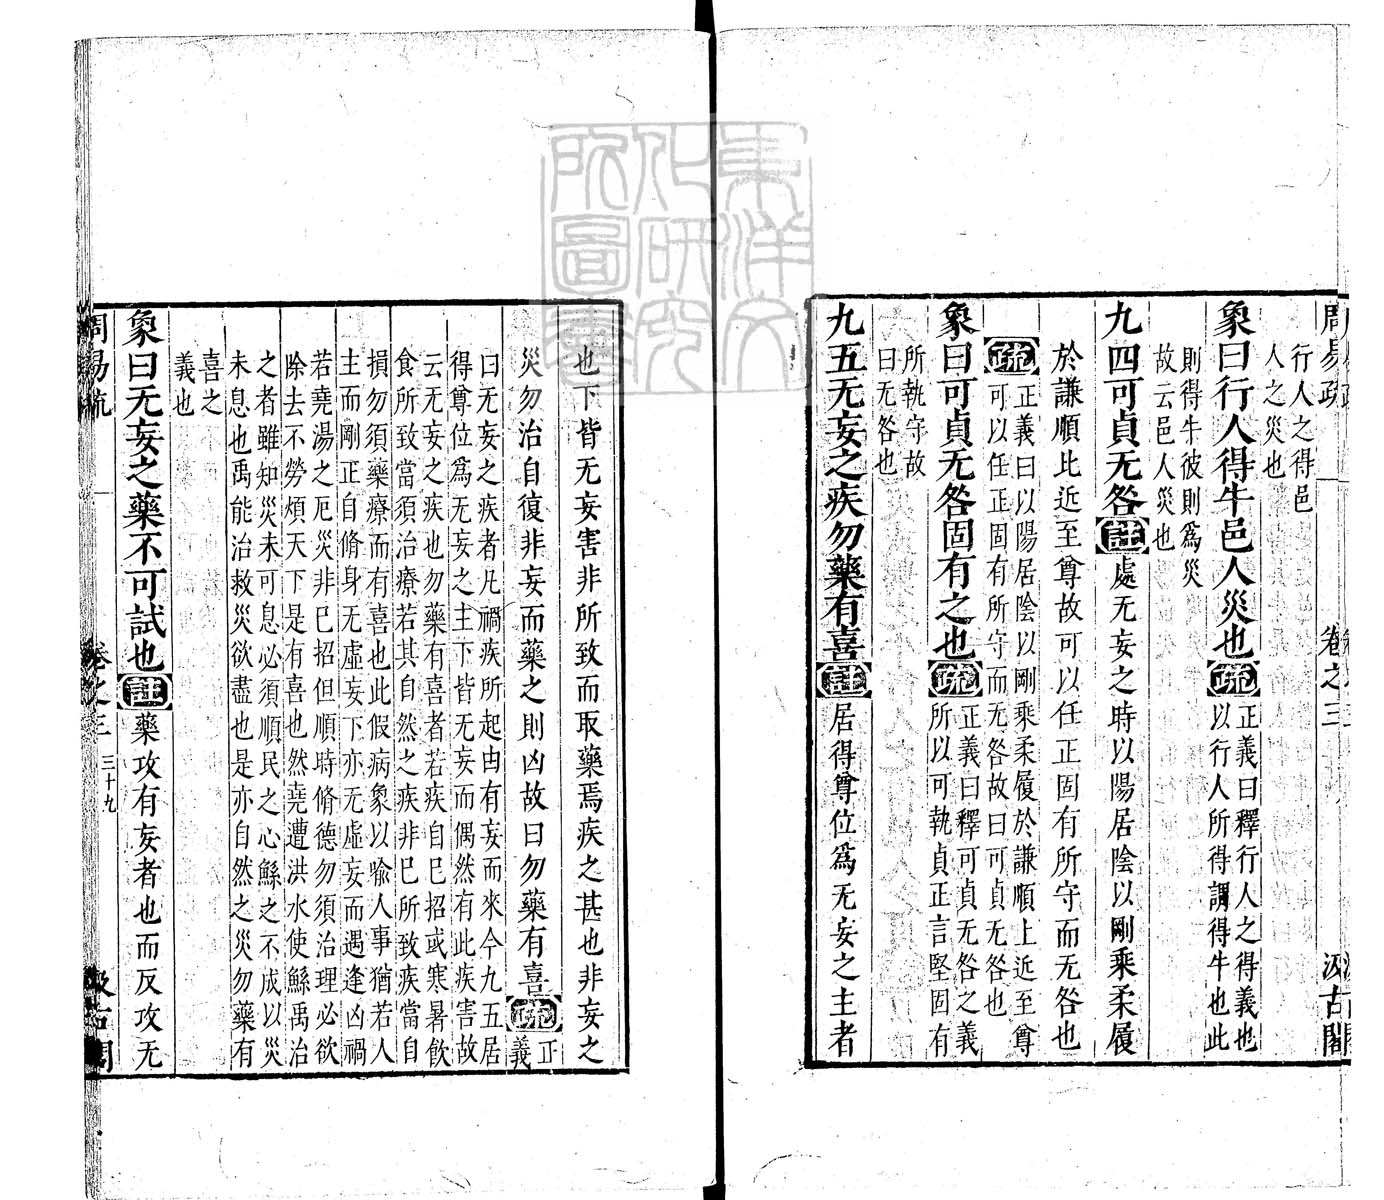 周易疏 卷之三 汲古閣
行人之得邑
人之災也
象曰行人得牛邑人災也疏正義曰釋行人之得義也
以行人所得謂得牛也此
則得牛彼則爲災
故云邑人災也
九四可貞无咎註處无妄之時以陽居陰以剛乘柔履
於謙順比近至尊故可以任正固有所守而无咎也
疏正義曰以陽居陰以剛乘柔履於謙順上近至尊
可以任正固有所守而无咎故曰可貞无咎也
象曰可貞无咎固有之也疏正義曰釋可貞无咎之義
所以可執貞正言堅固有
所執守故
曰无咎也
九五无妄之疾勿藥有喜註居得尊位爲无妄之主者
也下皆无妄害非所致而取藥焉疾之甚也非妄之
災勿治自復非妄而藥之則凶故曰勿藥有喜疏正
義
曰无妄之疾者凡禍疾所起由有妄而來今九五居
得尊位爲无妄之主下皆无妄而偶然有此疾害故
云无妄之疾也勿藥有喜者若疾自已招或寒暑飲
食所致當須治療若其自然之疾非已所致疾當自
損勿須藥療而有喜也此假病象以喻人事猶若人
主而剛正自脩身无虛妄下亦无虛妄而遇逢凶禍
若堯湯之厄災非已招但順時脩德勿須治理必欲
除去不勞煩天下是有喜也然堯遭洪水使鯀禹治
之者雖知災未可息必須順民之心鯀之不成以災
未息也禹能治救災欲盡也是亦自然之災勿藥有
喜之
義也
象曰无妄之藥不可試也註藥攻有妄者也而反攻无
周易疏 卷之三 三十九 汲古閣
東洋文
化研究
所圖書